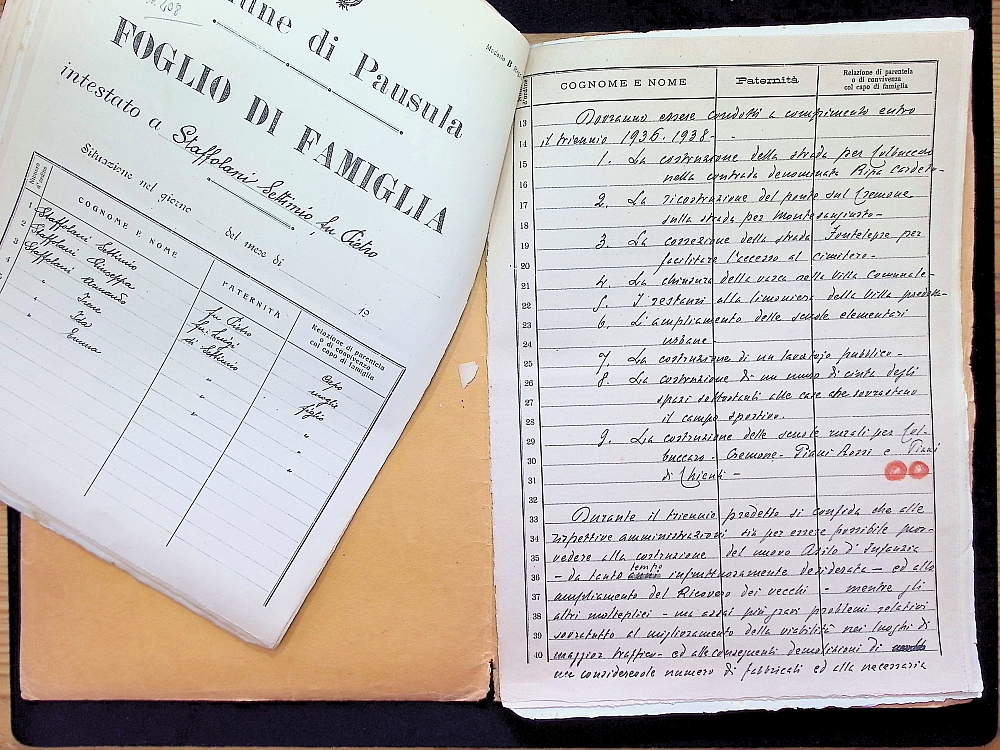 408
di Pausula
FOGLIO DI FAMIGLIA
intestato a Staffolani Settimio fu Pietro
Situazione nel giorno
del mese di
19
Numero d'ordine
COGNOME E NOME
PATERNITÀ
Relazione di parentela
o di convivenza
col capo di famiglia
1 Staffolani Settimio fu Pietro Capo
2 Staffolani Giuseppa fu Luigi moglie
3 Staffolani di Settimio figlio
4 " Irene " "
" Ida " "
" Emma "
Modello B
COGNOME E NOME
Paternità
Relazione di parentela
o di convivenza
col capo di famiglia
13 Dovranno essere condotti a compimento entro
14 il triennio 1936.1938-
15 1. La costruzione della strada per Colbuccaro
16 nella contrada denominata Ripa Cardeto-
17 2. La ricostruzione del ponte sul Cremone
18 sulla strada per Montesangiusto-
19 3. La correzione della strada Fontelepre per
20 facilitare l'accesso al cimitero-
21 4. La chiusura della vasca nella Villa Comunale-
22 5. I restauri alla limoniera della Villa predetta-
23 6. L'ampliamento delle scuole elementari
24 urbane-
25 7. La costruzione di un lavatojo pubblico-
26 8. La costruzione di un muro di cinta degli
27 spazi sottostanti alle case che sovrastano
28 il campo sportivo.
29 9. La costruzione delle scuole rurali per Col-
30 buccaro- Cremone- Piani Rossi e Piani
31 di Chienti-
32
33 Durante il triennio predetto si confida che alle
34 rispettive amministrazioni sia per essere possibile prov-
35 vedere alla costruzione del nuovo Asilo d'Infanzia
36 - da tanto tempo infruttuosamente desiderata- ed allo
37 ampliamento del Ricovero dei vecchi- mentre gli
38 altri molteplici- ma assai più gravi problemi relativi
39 sovratutto al miglioramento della viabilità nei luoghi di
40 maggior traffico- ed alle conseguenti demolizioni di
un considerevole numero di fabbricati ed alla necessaria